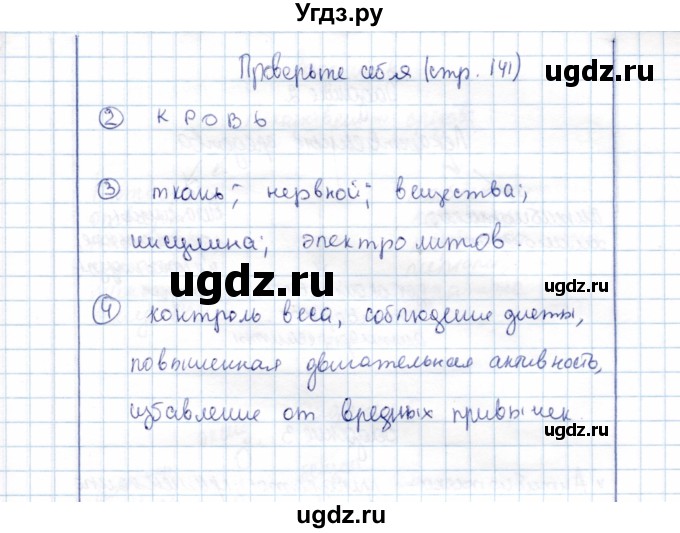 Угдз.ру
Проверьте себя (стр. 141)
ugdz.ru
② К Р О В Ь
ugdz.ru
③ ткань; нервной; вещества;
инсулина; электролитов.
ugdz.ru
ugdz.ru
④ контроль веса, соблюдение диеты,
повышенная двигательная активность,
избавление от вредных привычек.
ugdz.ru
ugdz.ru